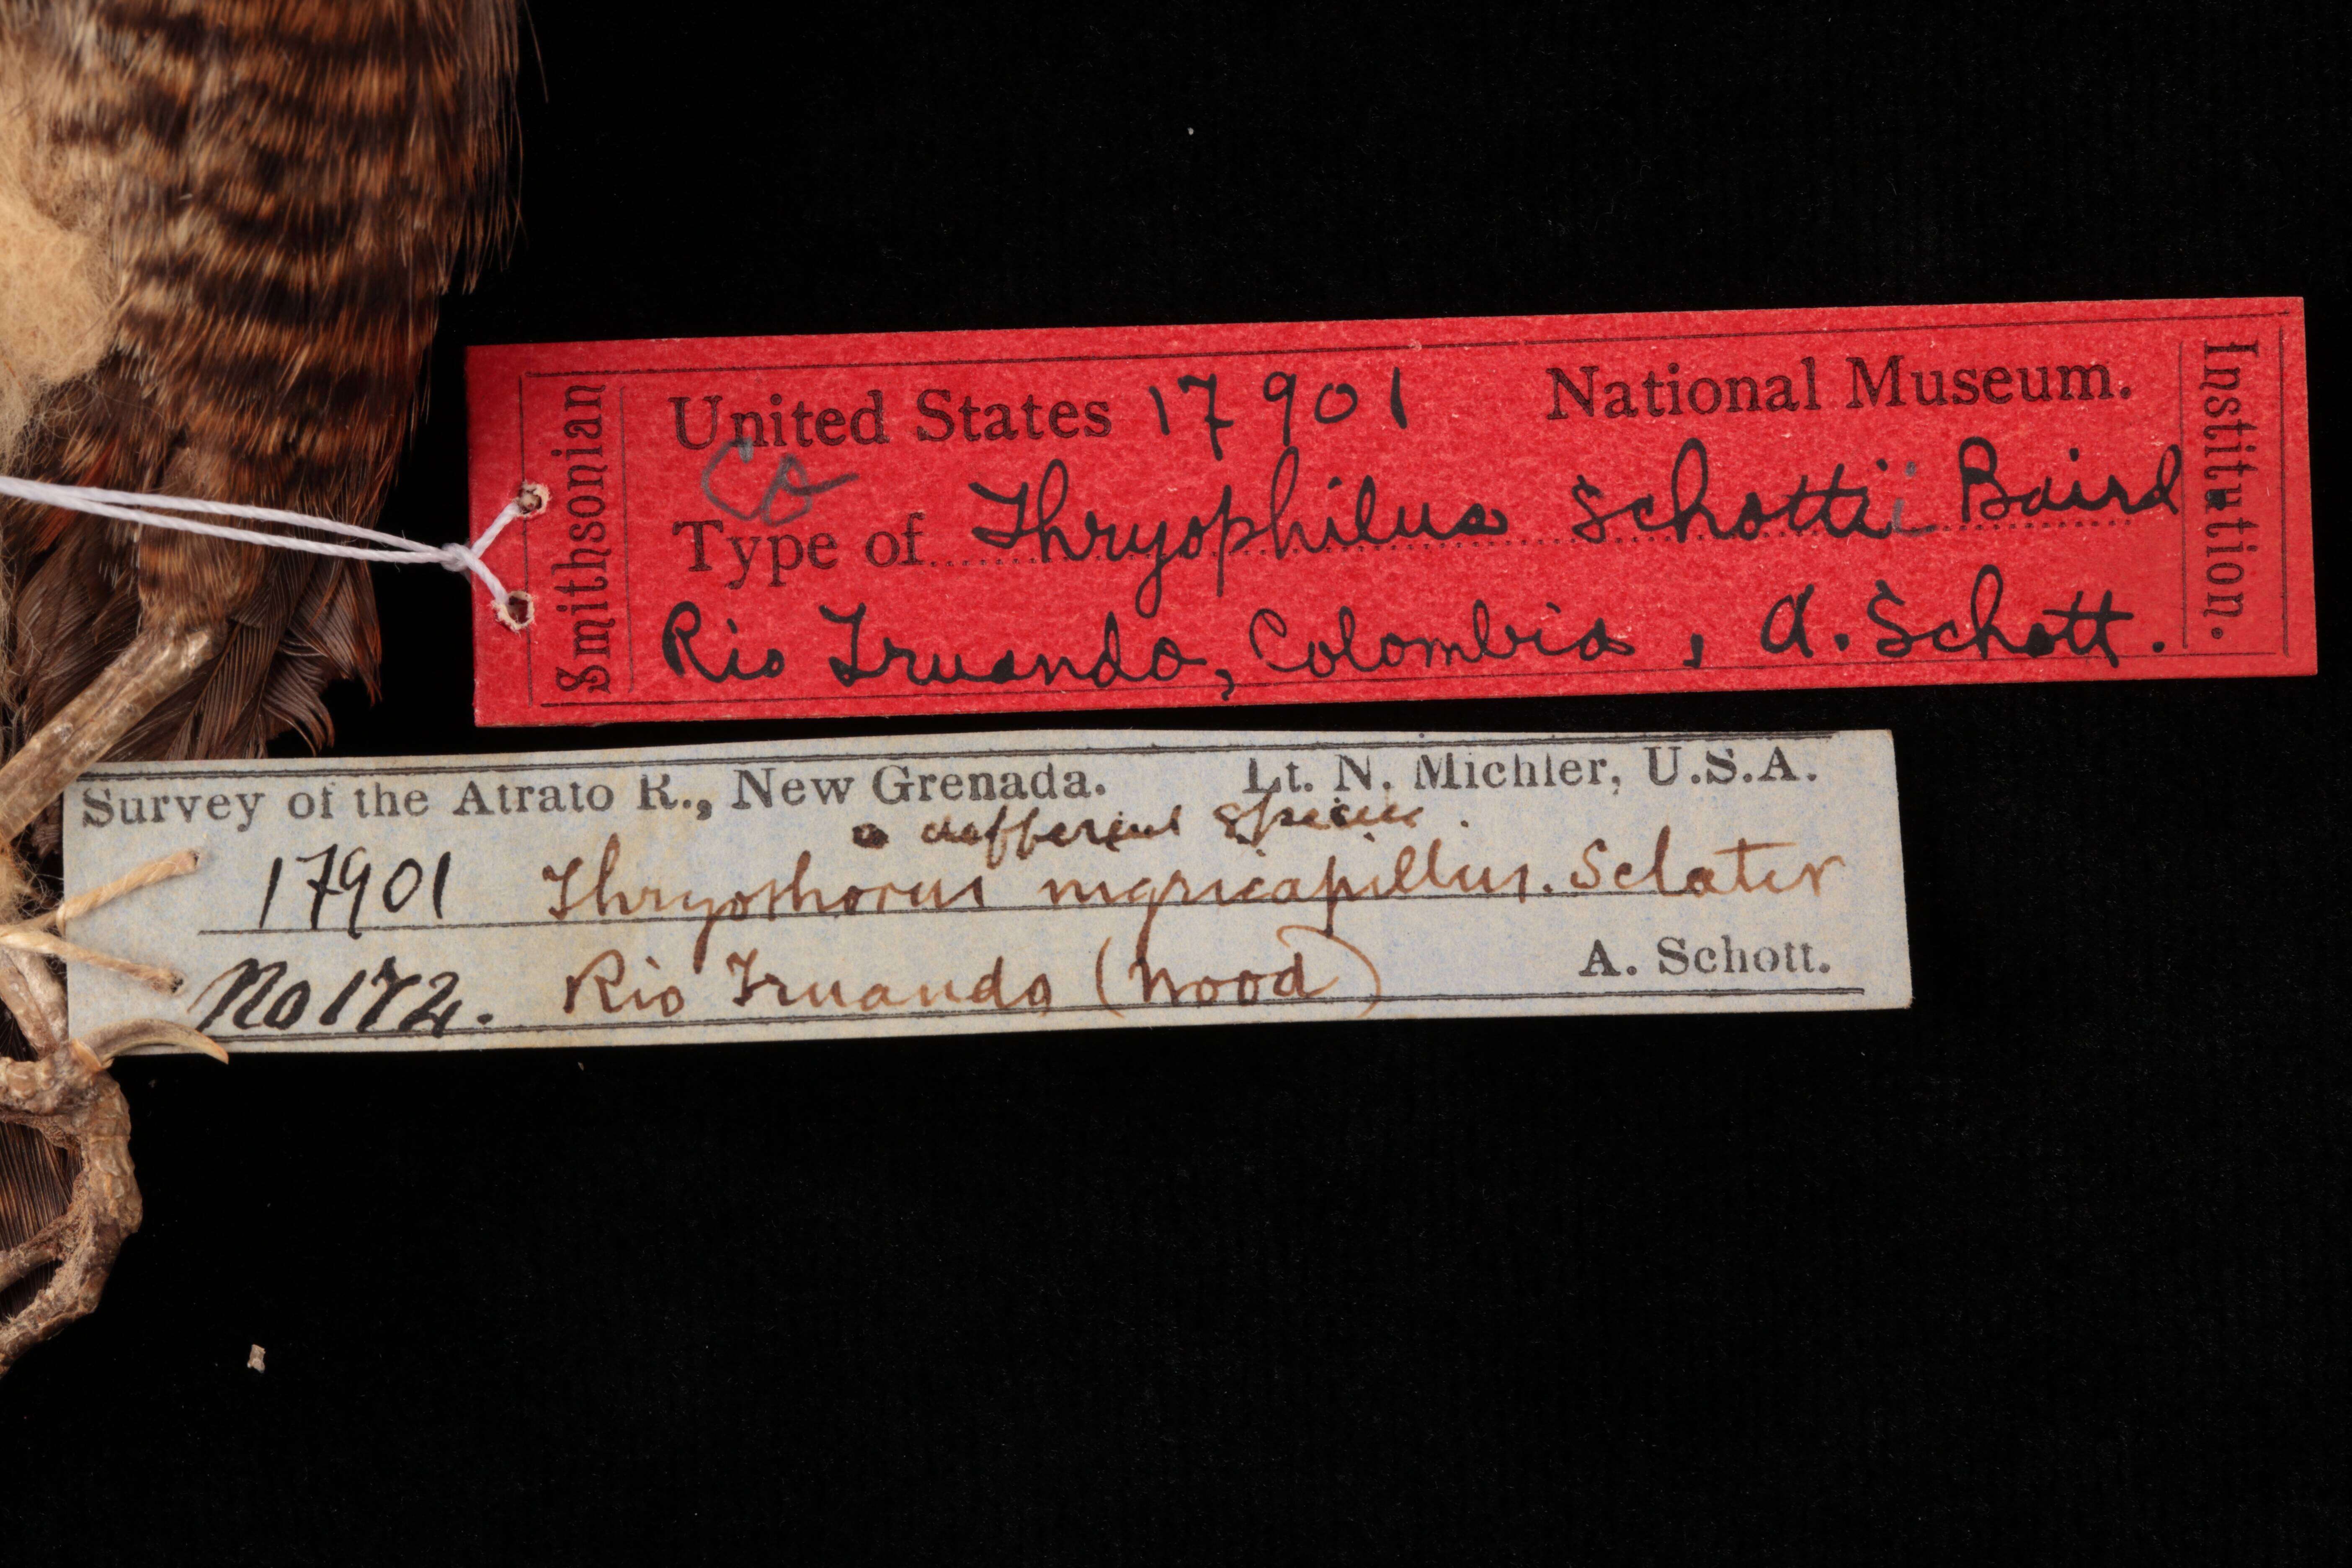 Smithsonian
United States 17901 National Museum.
Co
Type of Thryophilus Schottii Baird
Rio Truando, Colombia, A. Schott.
Institution.
Survey of the Atrato R., New Grenada. Lt. N. Michler, U.S.A.
a different species.
17901 Thryothorus nigricapillus. Sclater
No 172. Rio Truando (Wood) A. Schott.